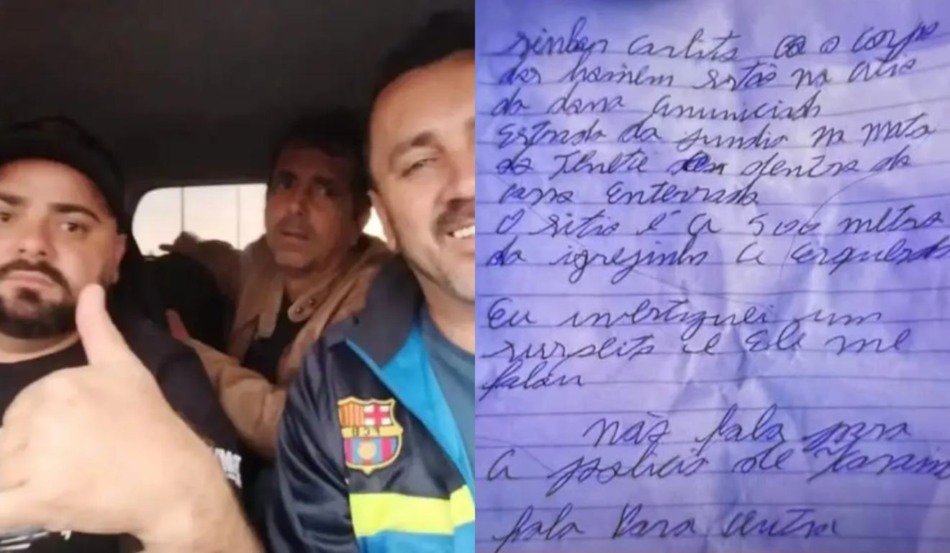 senhor Carlito o corpo
dos homem estão na área
da dona anunciada
Estrada da fundio na mata
de dentro do
carro Enterrado
O sitio é a 500 metro
da igrejinha a Esquerda
Eu investiguei um
suspeito e Ele me
falou
não fala para
a policia de
fala Para outra